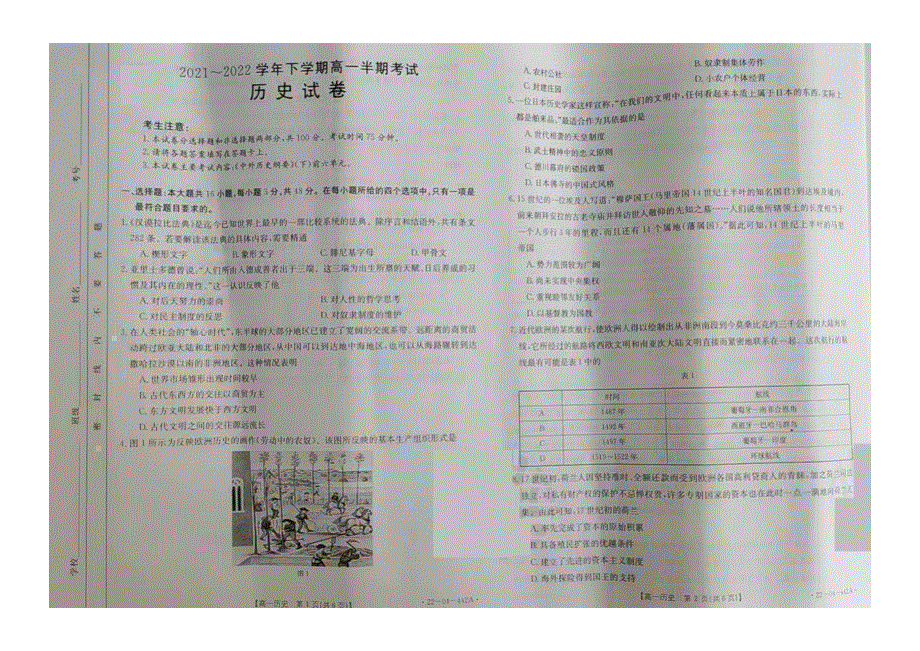 2021～2022学年下学期高一半期考试
历史试卷
考生注意：
1.本试卷分选择题和非选择题两部分，共100分。考试时间75分钟。
2.请将各题答案填写在答题卡上。
3.本试卷主要考试内容：《中外历史纲要》（下）前六单元。
一、选择题：本大题共16小题，每小题3分，共48分。在每小题所给的四个选项中，只有一项是
最符合题目要求的。
1.《汉谟拉比法典》是迄今已知世界上最早的一部比较系统的法典。除序言和结语外，共有条文
282条。若要解读该法典的具体内容，需要精通
A. 楔形文字 B. 象形文字 C. 腓尼基字母 D. 甲骨文
2.亚里士多德曾说，“人们所由入德成善者出于三端。这三端为出生所禀的天赋，日后养成的习
惯及其内在的理性。”这一认识反映了他
A. 对后天努力的崇尚 B. 对人性的哲学思考
C. 对民主制度的反思 D. 对奴隶制度的维护
3.在人类社会的“轴心时代”，东半球的大部分地区已建立了宽阔的交流系带。远距离的商贸活
动跨过欧亚大陆和北非的大部分地区，从中国可以到达地中海地区，也可以从海路辗转到达
撒哈拉沙漠以南的非洲地区。这种情况表明
A. 世界市场雏形出现时间较早
B. 古代东西方的交往以商贸为主
C. 东方文明发展快于西方文明
D. 古代文明之间的交往源远流长
4.图1所示为反映欧洲历史的画作《劳动中的农奴》。该图所反映的基本生产组织形式是
图1
【高一历史 第1页(共6页)】
·22-04-442A·
A. 农村公社 B. 奴隶制集体劳作
C. 封建庄园 D. 小农户个体经营
5.一位日本历史学家这样宣称：“在我们的文明中，任何看起来本质上属于日本的东西，实际上
都是舶来品。”最适合作为其依据的是
A. 世代相袭的天皇制度
B. 武士精神中的忠义原则
C. 德川幕府的锁国政策
D. 日本佛寺的中国式风格
6.15世纪的一位埃及人写道：“穆萨国王（马里帝国14世纪上半叶的知名国君）到达埃及境内，
前来朝拜安拉的古老寺庙并拜访世人敬仰的先知之墓……人们说他所辖领土的长度相当于
一个人步行3年的里程，而且还有14个属地（藩属国）。”据此可知，14世纪上半叶的马里
帝国
A. 势力范围较为广阔
B. 尚未实现中央集权
C. 重视睦邻友好关系
D. 以基督教为国教
7.近代欧洲的某次航行，使欧洲人得以绘制出从非洲南段到今莫桑比克约三千公里的大陆海岸
线，它所经过的航路将西欧文明和南亚次大陆文明直接而紧密地联系在一起。这次航行的航
线最有可能是表1中的
表1
时间 航线
A 1487年 葡萄牙—南非合恩角
B 1492年 西班牙—巴哈马群岛
C 1497年 葡萄牙—印度
D 1519—1522年 环球航线
8.17世纪初，荷兰人因坚持准时、全额还款而受到欧洲各国高利贷商人的青睐，加之荷兰司法
独立，对私有财产权的保护不忌惮权贵，许多专制国家的资本也在此时一点一滴地
果。由此可知，17世纪初的荷兰
A. 率先完成了资本的原始积累
B. 具备殖民扩张的优越条件
C. 建立了先进的资本主义制度
D. 海外探险得到国王的支持
【高一历史 第2页(共6页)】
·22-04-442A·
学校
班级
姓名
考号
密 封 线 内 不 要 答 题